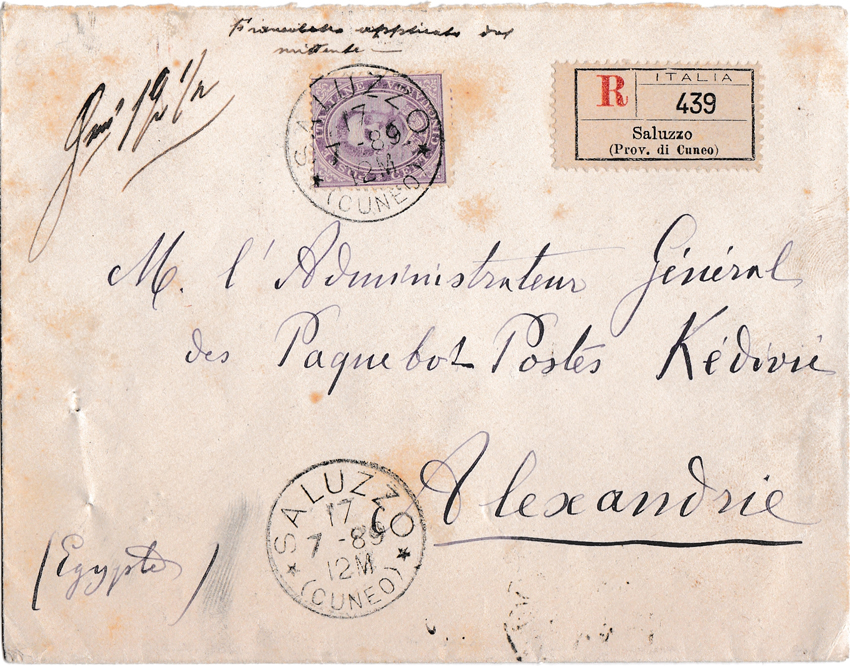 Francobollo applicato dal
mittente
SALUZZO
17
7 - 89
12M
(CUNEO)
R
ITALIA
439
Saluzzo
(Prov. di Cuneo)
M. l'Administrateur Général
des Paquebot Postes Kédivié
Alexandrie
(Egypte)
SALUZZO
17
7 - 89
12M
(CUNEO)